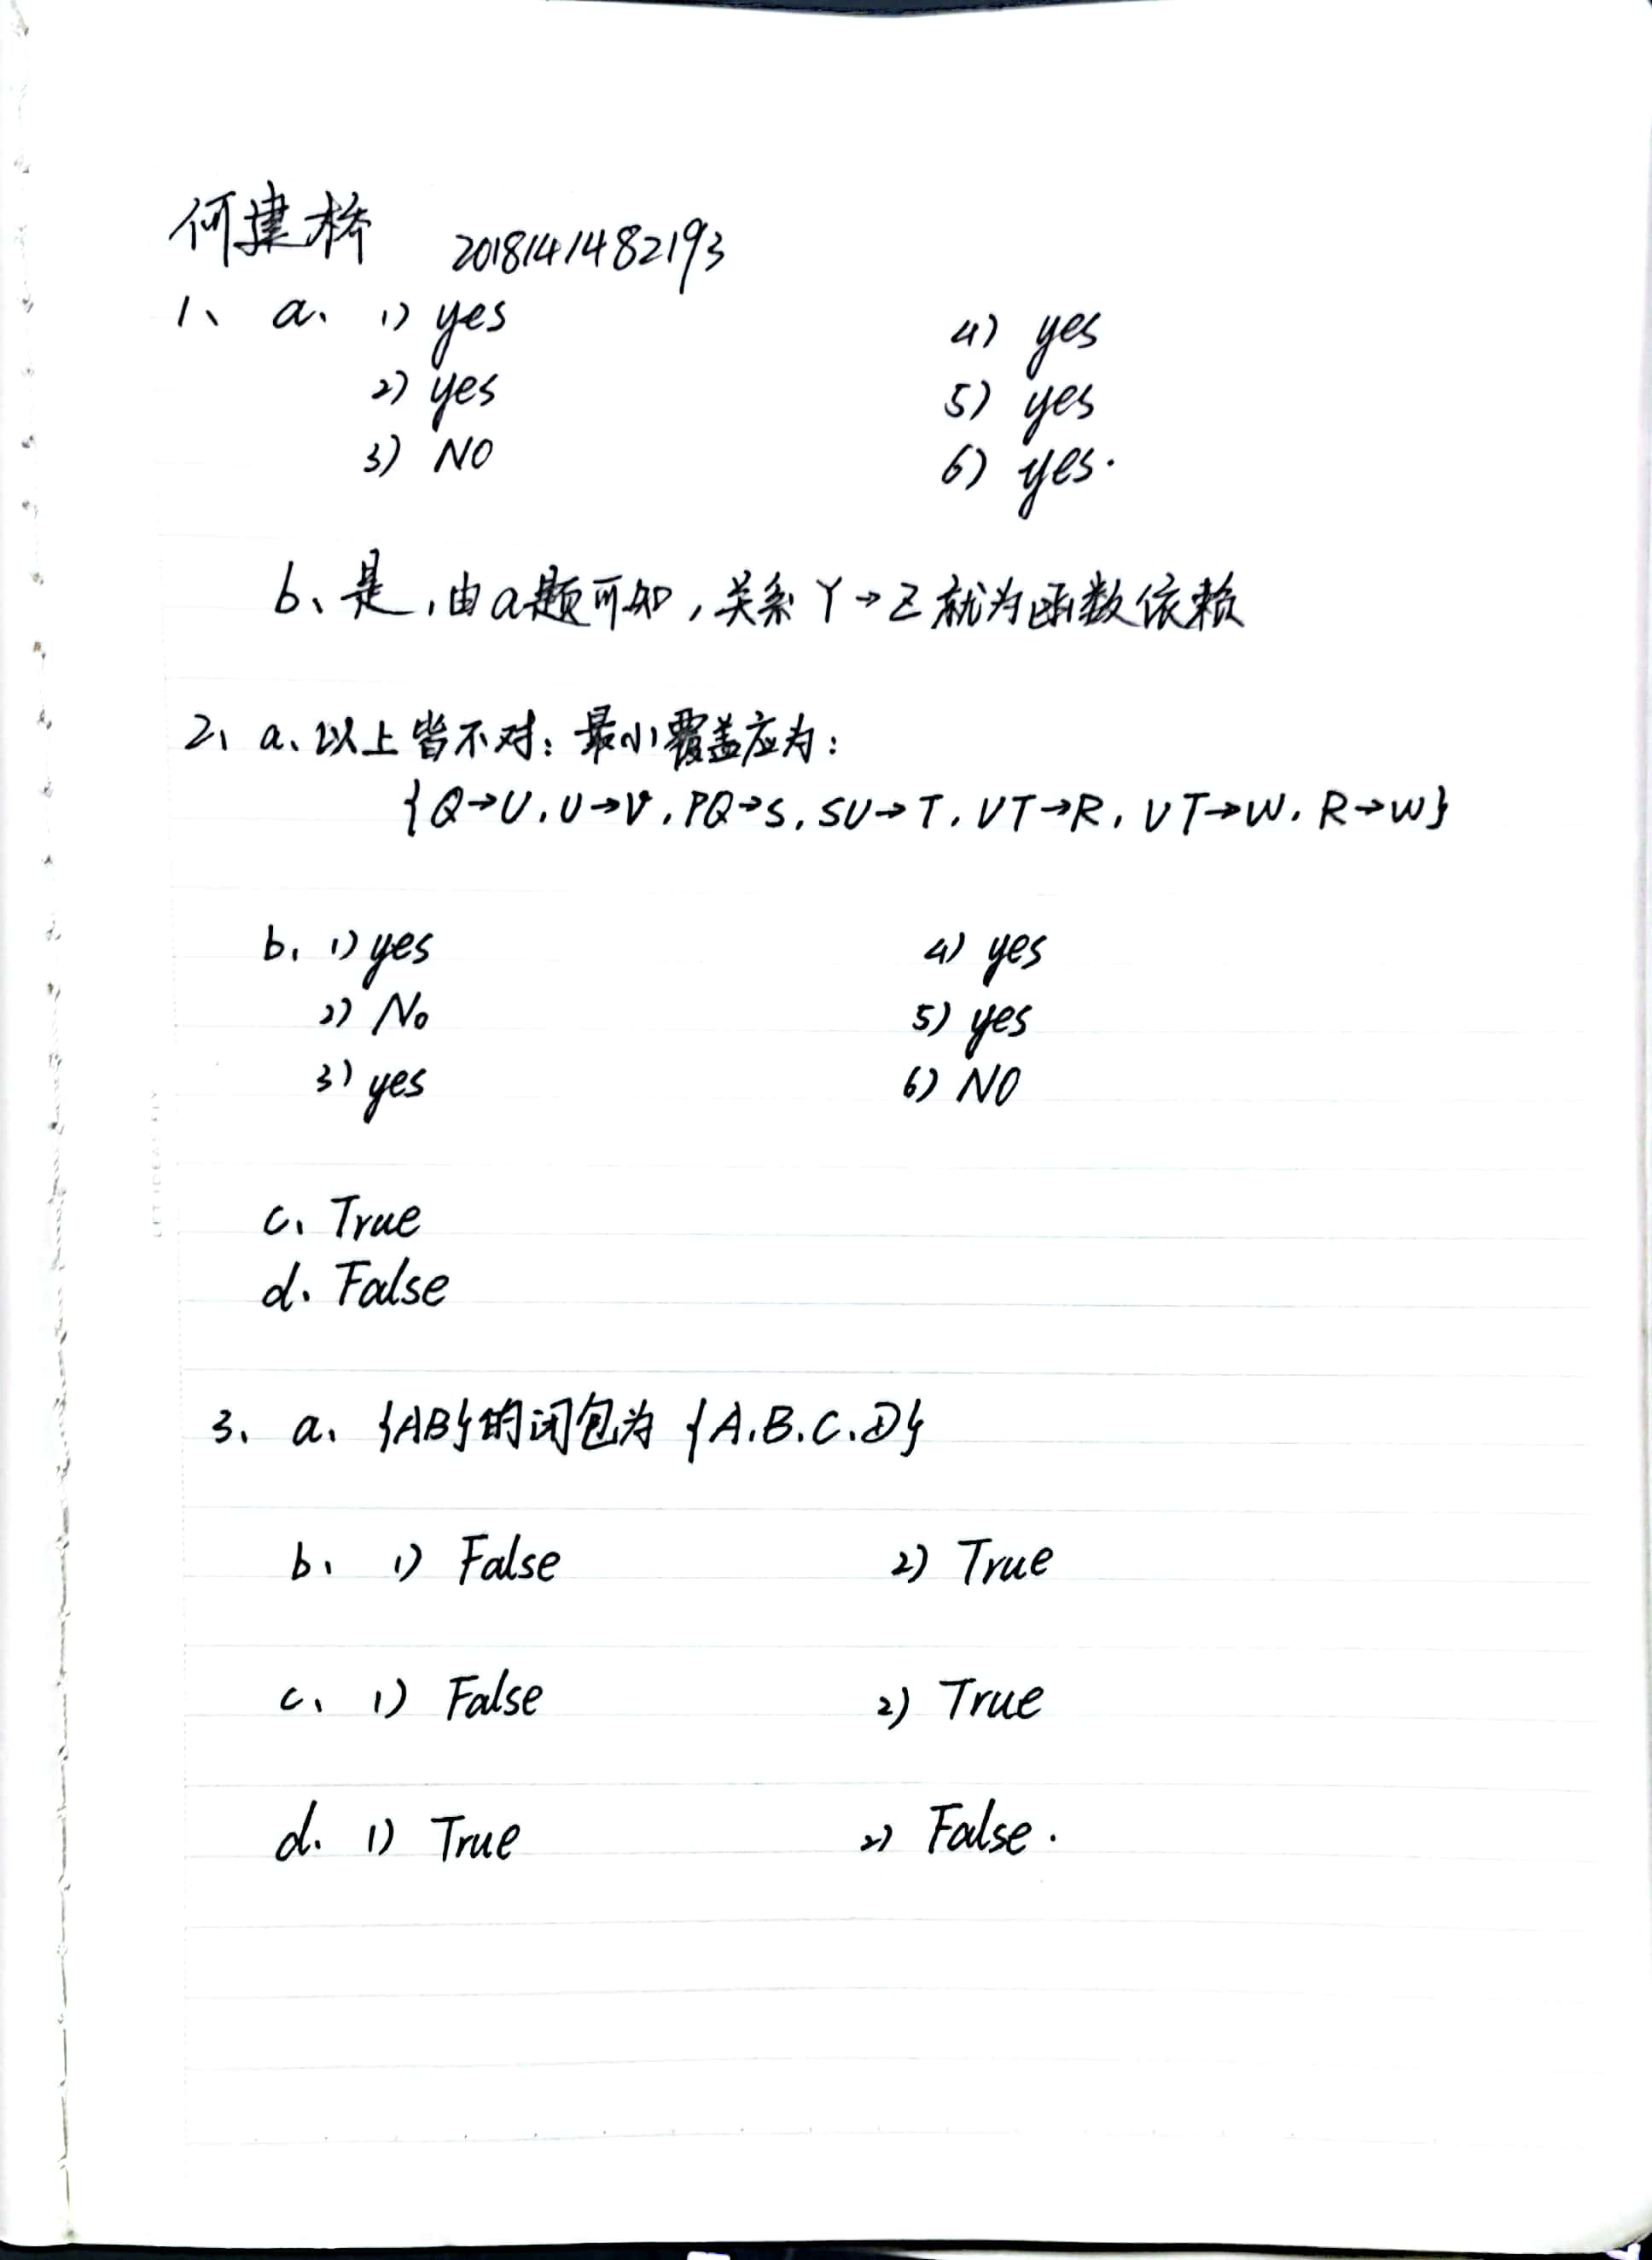 何建桥 2018141482193
1、 a、 1) yes 4) yes
2) yes 5) yes
3) NO 6) yes.
b、是,由a题可知,关系Y→Z就为函数依赖
2、 a、以上皆不对:最小覆盖应为:
{Q→U,U→V,PQ→S,SU→T,VT→R,VT→W,R→W}
b、 1) yes 4) yes
2) No 5) yes
3) yes 6) NO
c、True
d、False
3、 a、{AB}的闭包为{A.B.C.D}
b、 1) False 2) True
c、 1) False 2) True
d. 1) True 2) False.